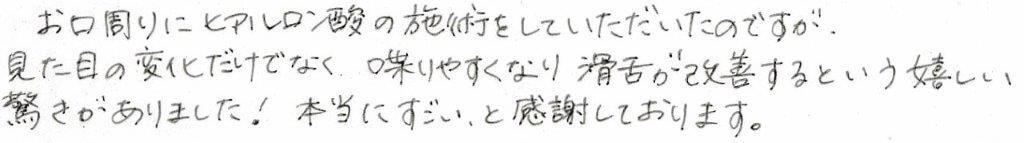 お口周りにヒアルロン酸の施術をしていただいたのですが、
見た目の変化だけでなく、喋りやすくなり滑舌が改善するという嬉しい
驚きがありました！ 本当にすごい、と感謝しております。